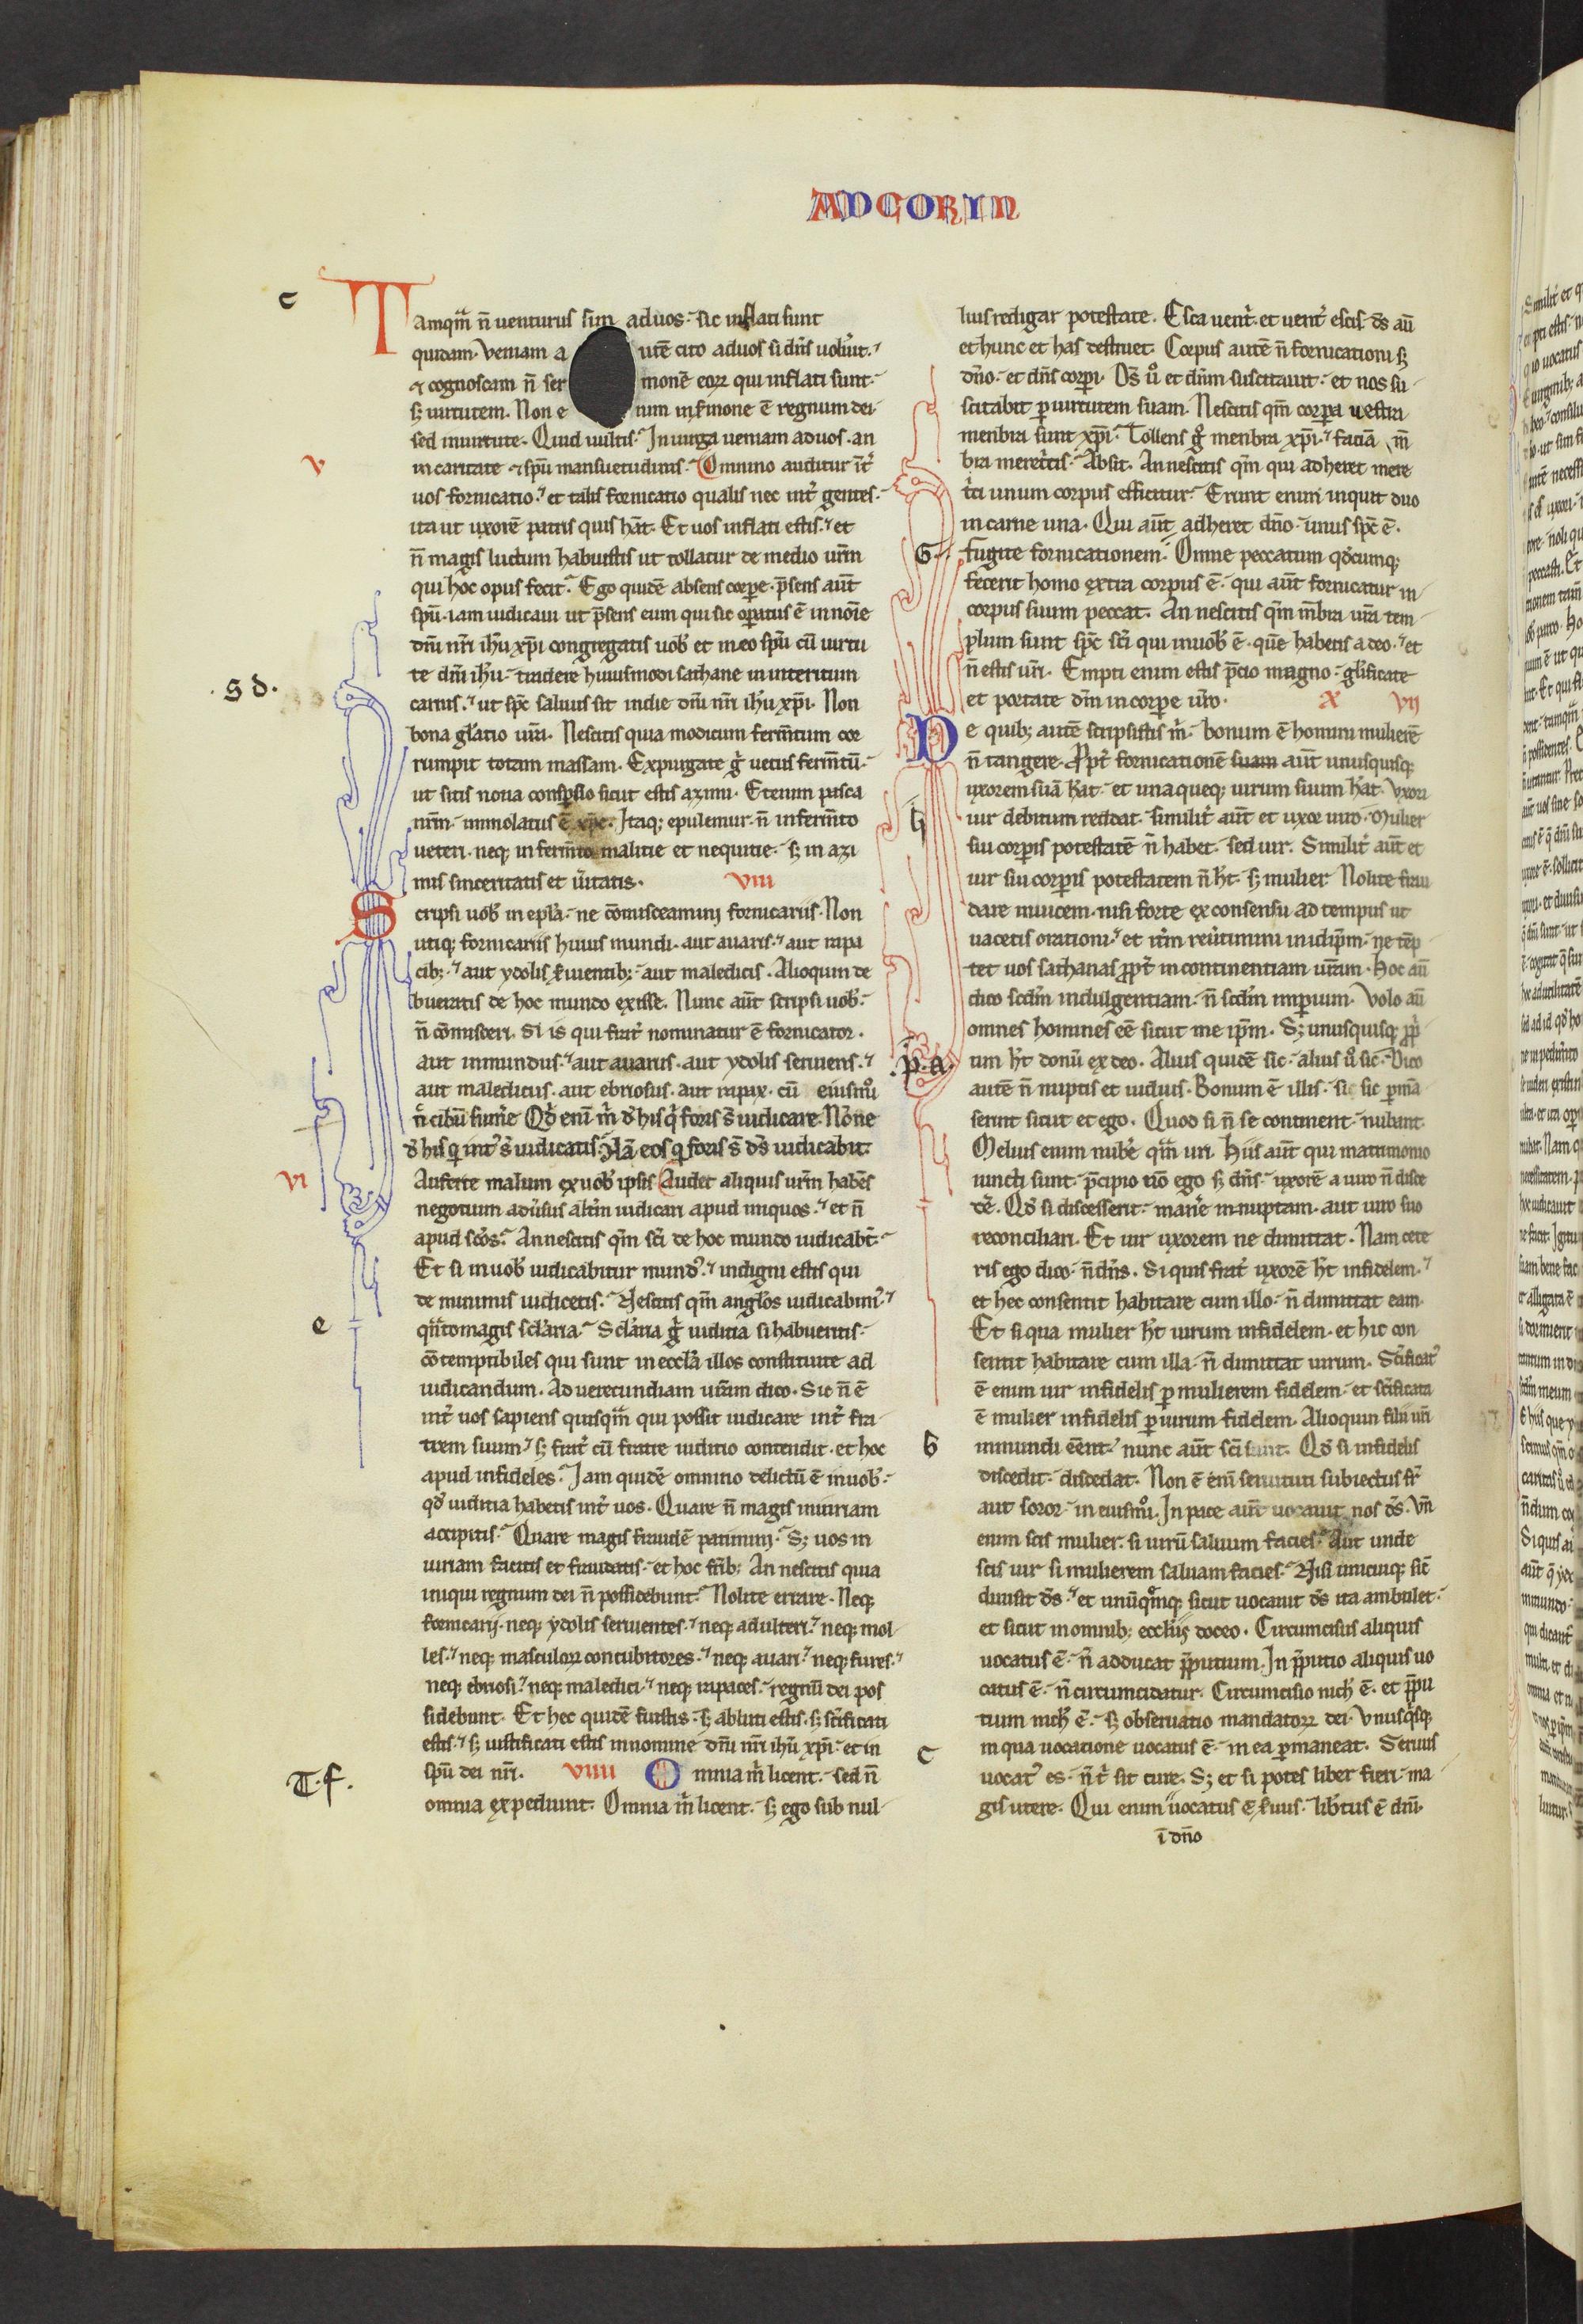 ADCORIN
c
Tamqm̄ n̄ venturus sim aduos. sic inflati sunt
quidam. Veniam a utē cito aduos si dn̄s uolūit.
⁊ cognoscam n̄ ser monē eoꝝ qui inflati sunt.
sꝫ uirtutem. Non e nim in s̄mone ē regnum dei.
sed in uirtute. Quid uultis. In uirga ueniam aduos. an
in caritate ⁊ spū mansuetudinis. Omnino auditur int̄
v
uos fornicatio. et talis fornicatio qualis nec int̄ gentes.
ita ut uxorē patris quis hāt. Et uos inflati estis. et
n̄ magis luctum habuistis ut tollatur de medio urm̄
qui hoc opus fecit. Ego quidē absens corpe. p̄sens aūt
spū. iam iudicaui ut p̄sens eum qui sic opatus ē in noīe
dn̄i nr̄i ihū xp̄i congregatis uob̄ et meo spū cū uirtu
te dn̄i ihū. tradere huiusmodi sathane in interitum
sd.
carnis. ut spc̄ saluus sit indie dn̄i nr̄i ihū xp̄i. Non
bona gl̄atio ur̄a. Nescitis quia modicum ferm̄tum cor
rumpit totam massam. Expurgate ḡ uetus ferm̄tū.
ut sitis noua conspsio sicut estis azimi. Etenim pasca
nr̄m. immolatus ē xp̄c. Itaqꝫ epulemur. n̄ in ferm̄to
ueteri. neqꝫ in ferm̄to malitie et nequitie. sꝫ in azi
mis sinceritatis et ūitatis. VIII
Scripsi uob̄ in epl̄a. ne cōmisceamini fornicariis. Non
utiqꝫ fornicariis huius mundi. aut auaris. aut rapa
cibꝫ. aut ydolis s̄uientibꝫ. aut maledicis. Alioquin de
bueratis de hoc mundo exisse. Nunc aūt scripsi uob̄.
n̄ cōmisceri. Si is qui frat̄ nominatur ē fornicator.
aut inmundus. aut auarus. aut ydolis seruiens.
aut maledicus. aut ebriosus. aut rapax. cū eiusmō
n̄ cibū sum̄e Qd̄ enī m̄ d̄ his q̄ foris s̄ iudicare. Nōne
d̄ his q̄ int̄ s̄ iudicatis. Nā eos q̄ foris s̄ ds̄ iudicabit.
vi
Auferte malum ex uob̄ ipsis Audet aliquis urm̄ habēs
negotium aduīsus alt̄m iudicari apud iniquos. et n̄
apud scōs. An nescitis qm̄ scī de hoc mundo iudicabt̄.
Et si in uob̄ iudicabitur mund᷒. indigni estis qui
de minimis iudicetis. Nescitis qm̄ anglōs iudicabim᷒.
e
qn̄tomagis scl̄aria. Scl̄aria ḡ iuditia si habueritis.
cōtemptibiles qui sunt in eccl̄a illos constituite ad
iudicandum. Ad uerecundiam ur̄am dico. Sic n̄ ē
int̄ uos sapiens quisqm̄ qui possit iudicare int̄ fra
trem suum. sꝫ frat̄ cū fratre iuditio contendit. et hoc
apud infideles. Iam quidē omnino delictū ē in uob̄.
qd̄ iuditia habetis int̄ uos. Quare n̄ magis iniuriam
accipitis. Quare magis fraudē patimini. Sꝫ uos in
iuriam facitis et fraudatis. et hoc fr̄ibꝫ An nescitis quia
iniqui regnum dei n̄ possidebunt. Nolite errare. Neqꝫ
fornicarij. neqꝫ ydolis seruientes. neqꝫ adulteri. neqꝫ mol
les. neqꝫ masculoꝝ concubitores. neqꝫ auari. neqꝫ fures.
neqꝫ ebriosi. neqꝫ maledici. neqꝫ rapaces. regnū dei pos
sidebunt. Et hec quidē fuistis. sꝫ abluti estis. sꝫ scīficati
estis. sꝫ iustificati estis in nomine dn̄i nr̄i ihū xp̄i. et in
T.f.
spū dei nr̄i. VIIII Omnia m̄ licent. sed n̄
omnia expediunt. Omnia m̄ licent. sꝫ ego sub nul
lius redigar potestate. Esca uent̄. et uent̄ escis. ds̄ aū
et hunc et has destruet. Corpus autē n̄ fornicationi sꝫ
dn̄o. et dn̄s corpi. Ds̄ u᷒o et dn̄m suscitauit. et nos su
scitabit p uirtutem suam. Nescitis qm̄ corpa uestra
menbra sunt xp̄i. Tollens ḡ menbra xp̄i. faciā m̄
bra meret̄cis. Absit. An nescitis qm̄ qui adheret mere
t̄ci unum corpus efficitur. Erunt enim inquit duo
in carne una. Qui aūt adheret dn̄o. unus spc̄ ē.
G.
fugite fornicationem. Omne peccatum qd̄cumqꝫ
fecerit homo extra corpus ē. qui aūt fornicatur in
corpus suum peccat. An nescitis qm̄ m̄bra ur̄a tem
plum sunt spc̄ scī qui in uob̄ ē. quē habetis a deo. et
n̄ estis ur̄i. Empti enim estis p̄cio magno. gl̄ificate
et portate dm̄ in corpe ur̄o. X VII
De quibꝫ autē scripsistis m̄. bonum ē homini mulierē
n̄ tangere. Ppt̄ fornicationē suam aūt unusquisqꝫ
uxorem suā hāt. et unaqueqꝫ uirum suum hāt. Vxori
h
uir debitum reddat. similit̄ aūt et uxor uiro. Mulier
sui corpis potestatē n̄ habet. sed uir. Similit̄ aūt et
uir sui corpis potestatem n̄ ht̄. sꝫ mulier Nolite frau
dare inuicem. nisi forte ex consensu ad tempus ut
uacetis orationi. et itm̄ reūtimini in idipm̄. ne tēp
tet uos sathanas ppt̄ incontinentiam ur̄am. Hoc aū
dico scdm̄ indulgentiam. n̄ scdm̄ imperium. Volo aū
omnes homines eē sicut me ipm̄. Sꝫ unusquisqꝫ pp̄
.p.a.
um ht̄ donū ex deo. Alius quidē sic. alius u᷒o sic. Dico
autē n̄ nuptis et uiduis. Bonum ē illis. si sic pmā
serint sicut et ego. Quod si n̄ se continent. nubant.
Melius enim nubē qm̄ uri. Hiis aūt qui matrimonio
iuncti sunt. p̄cipio nō ego sꝫ dn̄s. uxorē a uiro n̄ disce
dē̄. Qd̄ si discesserit. manē innuptam. aut uiro suo
reconciliari. Et uir uxorem ne dimittat. Nam cete
ris ego dico. n̄ dn̄s. Si quis frat̄ uxorē ht̄ infidelem.
et hec consentit habitare cum illo. n̄ dimittat eam.
Et si qua mulier ht̄ uirum infidelem. et hic con
sentit habitare cum illa. n̄ dimittat uirum. Scīficat᷒
ē enim uir infidelis p mulierem fidelem. et scīficata
ē mulier infidelis p uirum fidelem. Alioquin filii ur̄i
G
inmundi eēnt. nunc aūt scī sunt. Qd̄ si infidelis
discedit. discedat. Non ē enī seruituti subiectus fr̄
aut soror. in eiusmō. In pace aūt uocauit nos ds̄. Vn̄
enim scis mulier. si uirū saluum facies. Aut unde
scis uir si mulierem saluam facies. Nisi unicuiqꝫ sic̄
diuisit ds̄. et unūqm̄qꝫ sicut uocauit ds̄ ita ambulet.
et sicut in omnibꝫ eccl̄iis doceo. Circumcisus aliquis
uocatus ē. n̄ adducat p̄putium. In p̄putio aliquis uo
catus ē. n̄ circumcidatur. Circumcisio nich̄ ē. et p̄pu
tium nich̄ ē. sꝫ obseruatio mandatoꝝ dei. Vnusq̄sqꝫ
c
in qua uocatione uocatus ē. in ea pmaneat. Seruus
uocat᷒ es. n̄ t̄ sit cure. Sꝫ et si potes liber fieri. ma
gis utere. Qui enim uocatus ē s̄uus. lib̄tus ē dn̄i.
ī dn̄o